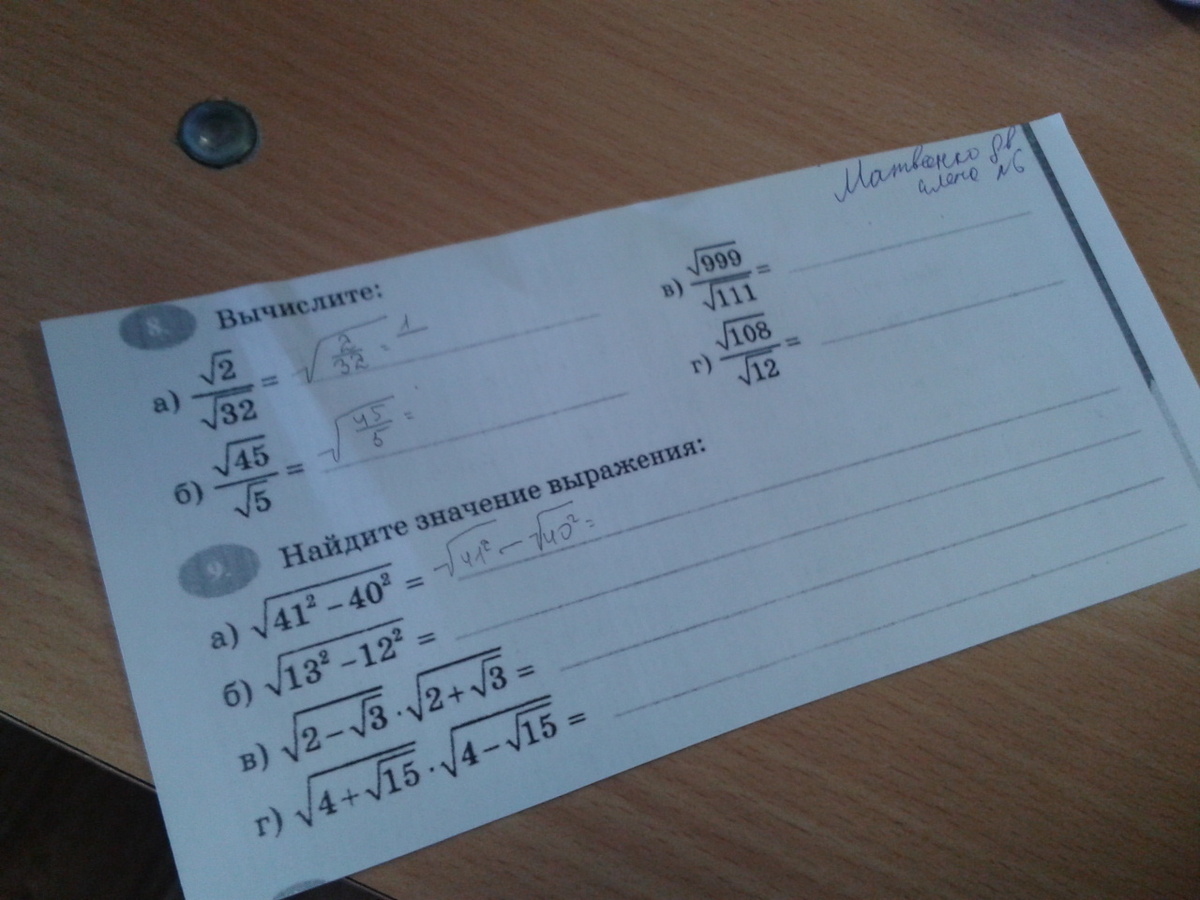 Матвеенко 8в
алена №6
8. Вычислите:
а) √2/√32 = √(2/32) = 1
б) √45/√5 = √(45/5) =
в) √999/√111 =
г) √108/√12 =
9. Найдите значение выражения:
а) √(41² − 40²) = √41² − √40² =
б) √(13² − 12²) =
в) √(2−√3) · √(2+√3) =
г) √(4+√15) · √(4−√15) =